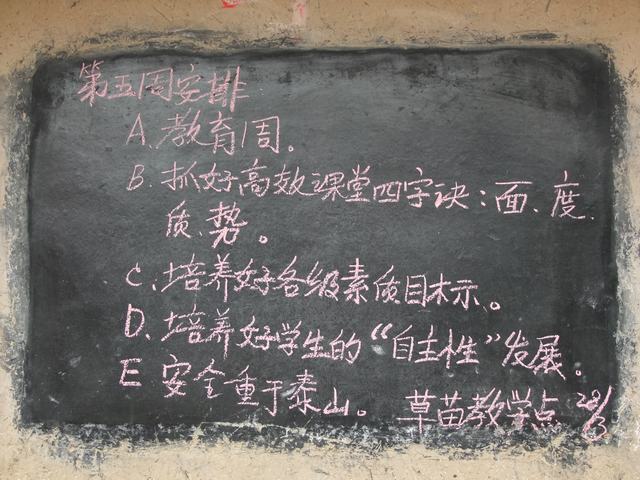 第五周安排
A.教育周。
B.抓好高效课堂四字诀：面、度、
质、势。
C.培养好各级素质目标。
D.培养好学生的“自主性”发展。
E 安全重于泰山。 草苗教学点 29/3